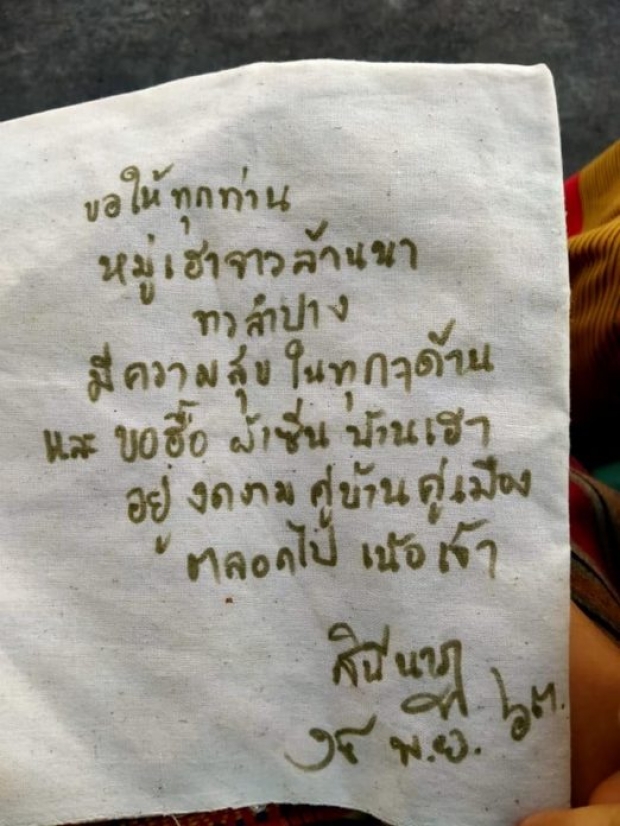 ขอให้ทุกท่าน
หมู่เฮาชาวล้านนา
ทวลำปาง
มีความสุขในทุกๆด้าน
และ ขอฮื้อ ผ้าซิ่น บ้านเฮา
อยู่ งดงาม คู่บ้าน คู่เมือง
ตลอดไป เน้อเจ้า
สินีนาฏ
พ.ย. ๖๓.